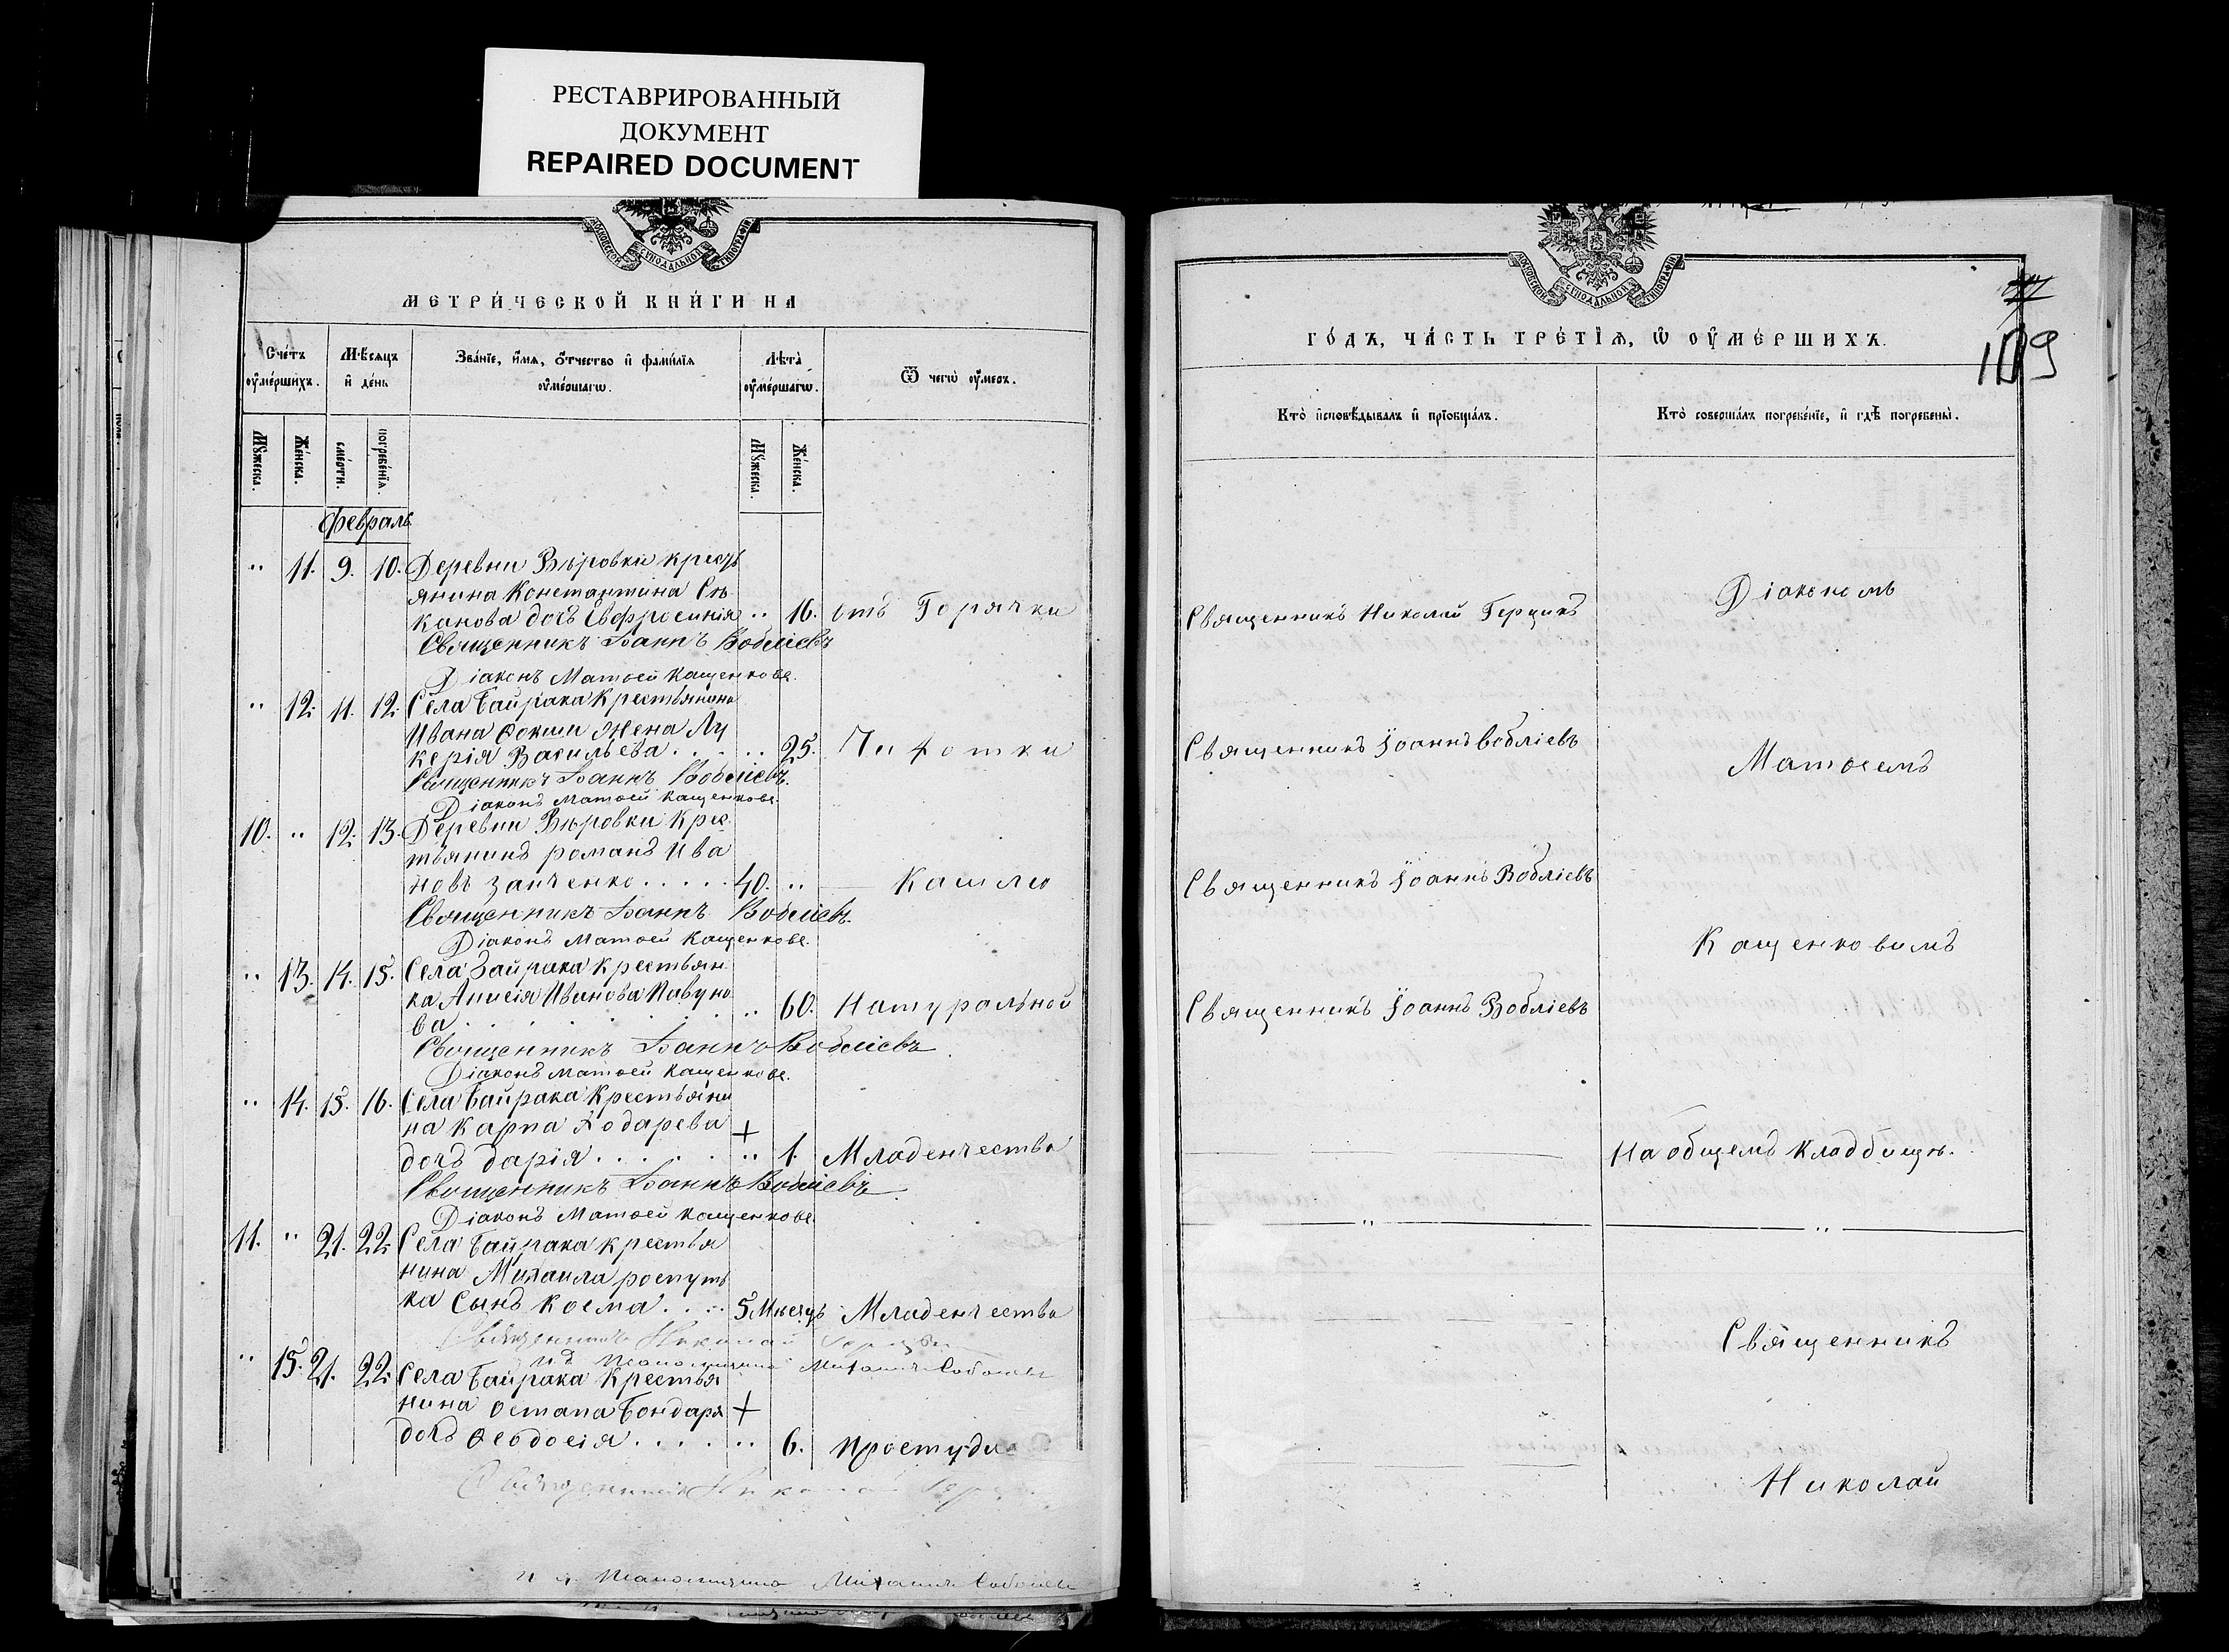 РЕСТАВРИРОВАННЫЙ
ДОКУМЕНТ
REPAIRED DOCUMENT
МОСКОВСКОЙ СѴНОДАЛЬНОЙ ТИПОГРАФІИ
МЕТРИ́ЧЕСКОЙ КНИ́ГИ НА
Сче́тъ оу҆ме́ршихъ.
Мѣ́сяцъ и҆ де́нь
Зва́нїе, и҆́мя, ѻ҆́тчество и҆ фами́лїя оу҆ме́ршагѡ.
Лѣта̀ оу҆ме́ршагѡ.
Ѿ чегѡ̀ оу҆́меръ.
Мꙋ́жеска.
Же́нска.
сме́рти.
погребе́нїя.
Мꙋ́жеска.
Же́нска.
Февраль
" 11. 9. 10. Деревни Вѣровки кресть
янина Константина
канова дочь Евфросинія " 16. отъ Горячки
Священникъ Іоаннъ Воблієвъ
Діаконъ Матѳей Кащенковъ.
" 12. 11. 12. Села Байрака Крестьянина
Ивана Фокши Жена Лу
керія Васильева . . . . " 25. Чахотки
Священникъ Іоаннъ Воблієвъ.
Діаконъ Матѳей Кащенковъ.
10. " 12. 13. Деревни Вѣровки Крес
тьянинъ романъ Ива
новъ Занченко . . . . . 40. " Кашлю
Священникъ Іоаннъ Воблієвъ.
Діаконъ Матѳей Кащенковъ.
" 13. 14. 15. Села Байрака крестьян
ка Анисія Иванова Павуно
ва . . . . . . . " 60. Натуральной
Священникъ Іоаннъ Воблієвъ
Діаконъ Матѳей Кащенковъ.
" 14. 15. 16. Села Байрака Крестьяни
на Карпа +
дочь Дарія . . . . . " 1. Младенчества
Священникъ Іоаннъ Воблієвъ.
Діаконъ Матѳей Кащенковъ
11. " 21. 22. Села Байрака крестья
нина Михаила роспуть
ка Сынъ Косма . . . . 5 Мѣсяцъ Младенчества
Священникъ Николай
Михаилъ
" 15. 21. 22. Села Байрака Крестья
нина Остапа Бондаря +
дочь Ѳеодосія . . . . . " 6. Простуды
Священникъ Николай
Михаилъ
МОСКОВСКОЙ СѴНОДАЛЬНОЙ ТИПОГРАФІИ
ГО́ДЪ, ЧА́СТЬ ТРЕ́ТЇЯ, Ѡ҆ ОУ҆МЕ́РШИХЪ.
109
Кто̀ и҆сповѣ́дывалъ и҆ прїобща́лъ.
Кто̀ соверша́лъ погребе́нїе, и҆ гдѣ̀ погребены̀.
Священникъ Николай Герцикъ
Діакономъ
Священникъ Іоаннъ Воблієвъ
Матѳеемъ
Священникъ Іоаннъ Воблієвъ
Кащенковимъ
Священникъ Іоаннъ Воблієвъ
На общемъ Кладбищѣ.
Священникъ
Николай